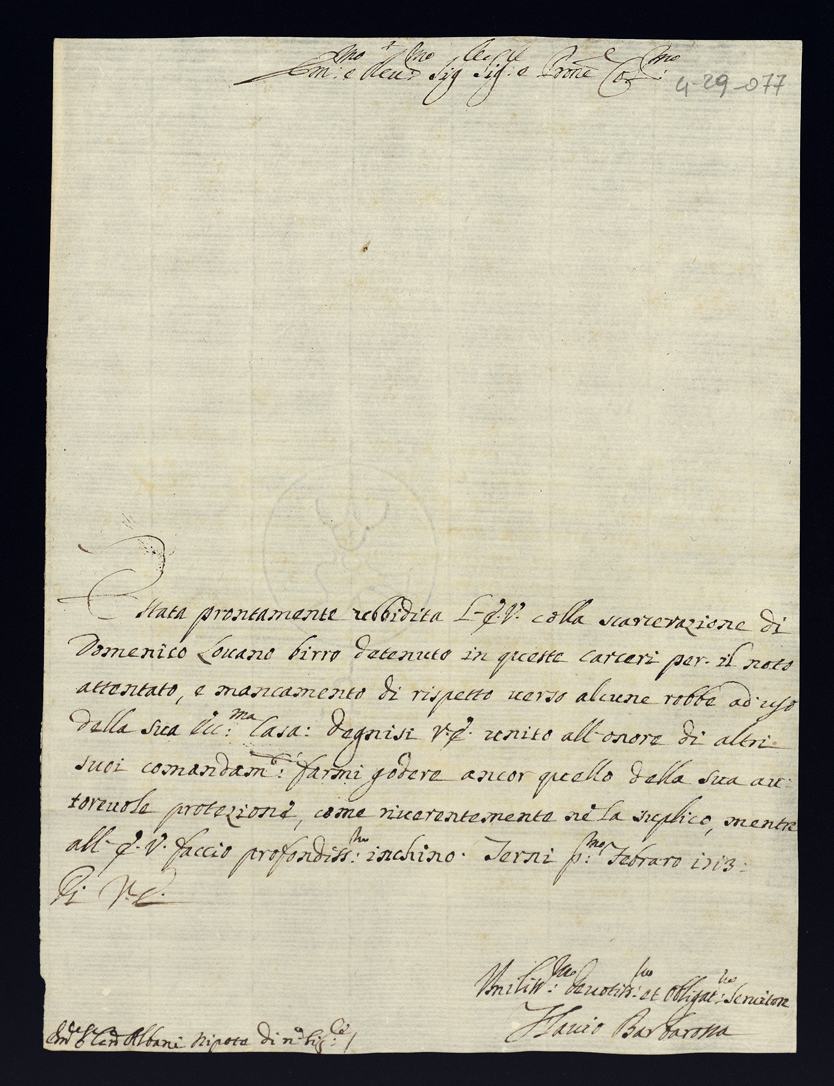 Em:mo e Reu:mo Sig Sig:e e Prone Co:mo
4-29-077
È Stata prontamente ubbidita L'E.V. colla scarcerazione di
Domenico Louano birro detenuto in queste carceri per il noto
attentato, e mancamento di rispetto uerso alcune robbe ad uso
della sua Ecc:ma Casa: degnisi V.E. unito all'onore di altri
suoi comandam:ti farmi godere ancor quello della sua au:
toreuole protezione, come riuerentemente ne la suplico, mentre
all'E.V. faccio profondiss:mo inchino. Terni p:mo Febraro 1713:
Di V.E.
Vmiliss:mo Deuotiss:mo et Obligat:mo Seruitore
Flauio Barbarossa
Albani Nipote di